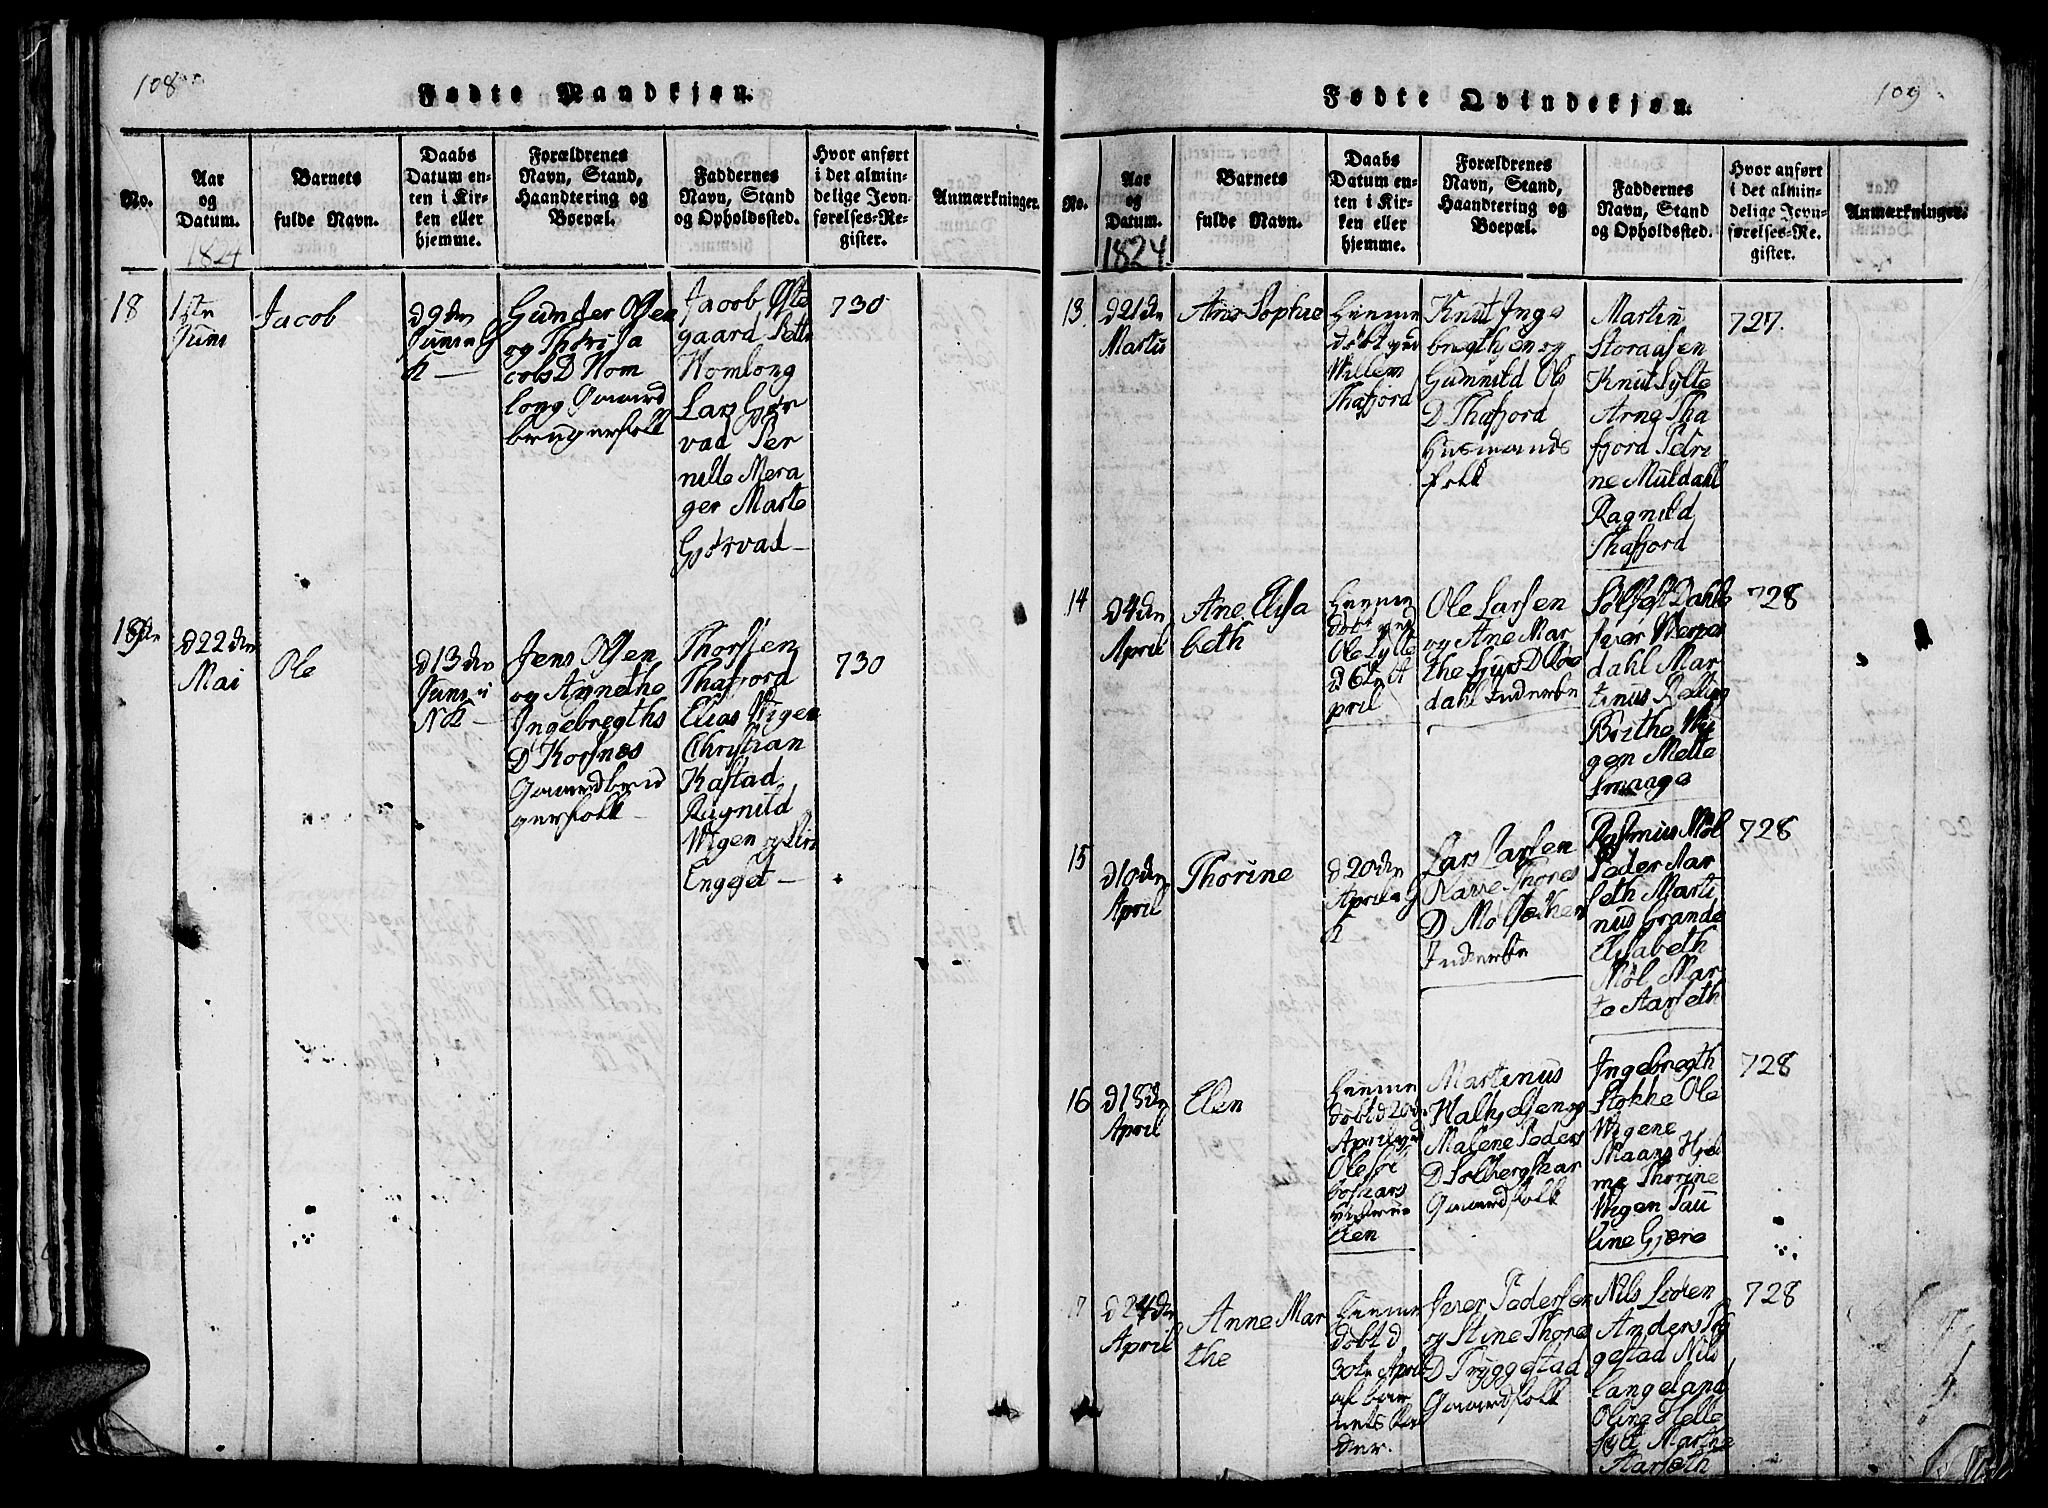 108
Fødte Mandkjøn.
No.
Aar
og
Datum.
1824
Barnets
fulde Navn.
Daabs
Datum en-
ten i Kir-
ken eller
hjemme.
Forældrenes
Navn, Stand,
Haandtering og
Boepæl.
Faddernes
Navn, Stand
og Opholdssted.
Hvor anført
i det almin-
delige Jevn-
førelses-Re-
gister.
Anmærkninger.
18
1ste
Juni
Jacob
d 9de
Juni
K
Gunder Olsen
og Thóri Ja
cobs D Hom
long Gaard
brugerfolk
Jacob Øste
gaard
Homlong
Lars Gjør
vad Per
nille Mera
ger Marte
Gjørvad
730
19de
d 22de
Mai
Ole
d 13de
Juni i
NK
Jens Olsen
og Annethe
Ingebregths
D Korsnæs
Gaardbrú
gerfolk
Thorsten
Thafjord
Elias Wigen
Christian
Kastad
Ragnild
Wigen og Siri
Engeset
730
109
Fødte Qvindekjøn.
No.
Aar
og
Datum.
1824
Barnets
fulde Navn.
Daabs
Datum en-
ten i Kir-
ken eller
hjemme.
Forældrenes
Navn, Stand,
Haandtering og
Boepæl.
Faddernes
Navn, Stand
og Opholdssted.
Hvor anført
i det almin-
delige Jevn-
førelses-Re-
gister.
Anmærkninger.
13
d 21de
Martii
Ane Sophie
hiemme
døbt ved
Willem
Thafjord
Knut Inge
bregthsen og
Gunnild Ols
D Thafjord
Husmands
folk
Martin
Storaasen
Knut Sylte
Arne Tha
fjord Petri
ne Muldahl
Ragnild
Thafjord
727.
14
d 4de
April
Ane Elisa
beth
hiemme
døbt ved
Ole Sylte
d 6te A
pril
Ole Larsen
og Ane Mar
the Ivers D
dahl Inderste
Dahle
Iver Herpes
dahl Mar
tinus Relling
Brithe Wi
gen Mette
Smaage
728
15
d 10de
April
Thorine
d 20de
April i
K
Lars Larsen
Thores
D Mólsæther
Inderste
Rasmus Mól
Peder Aar
seth Marti
nus Grande
Elisabeth
Mól Mar
te Aarseth
728
16
d 15de
April
Elen
hiemme
døbt d 20de
April ved
Ole
Martinus
Malene Peders
D Solbergskar
Gaardfolk
Ingebregth
Stokke Ole
Wigene
Maans Hjel
me Thorine
Wigen Pau
line Gjære
728
17
d 24de
April
Anne Mar
the
hiemme
døbt d
30te April
af bar
nets
Iver Pedersen
og Stine Thores
D Tryggestad
Gaardfolk
Nils Løden
Anders Try
gestad Nils
Langeland
Oline Helle
Sylt Marthe
Aarseth
728